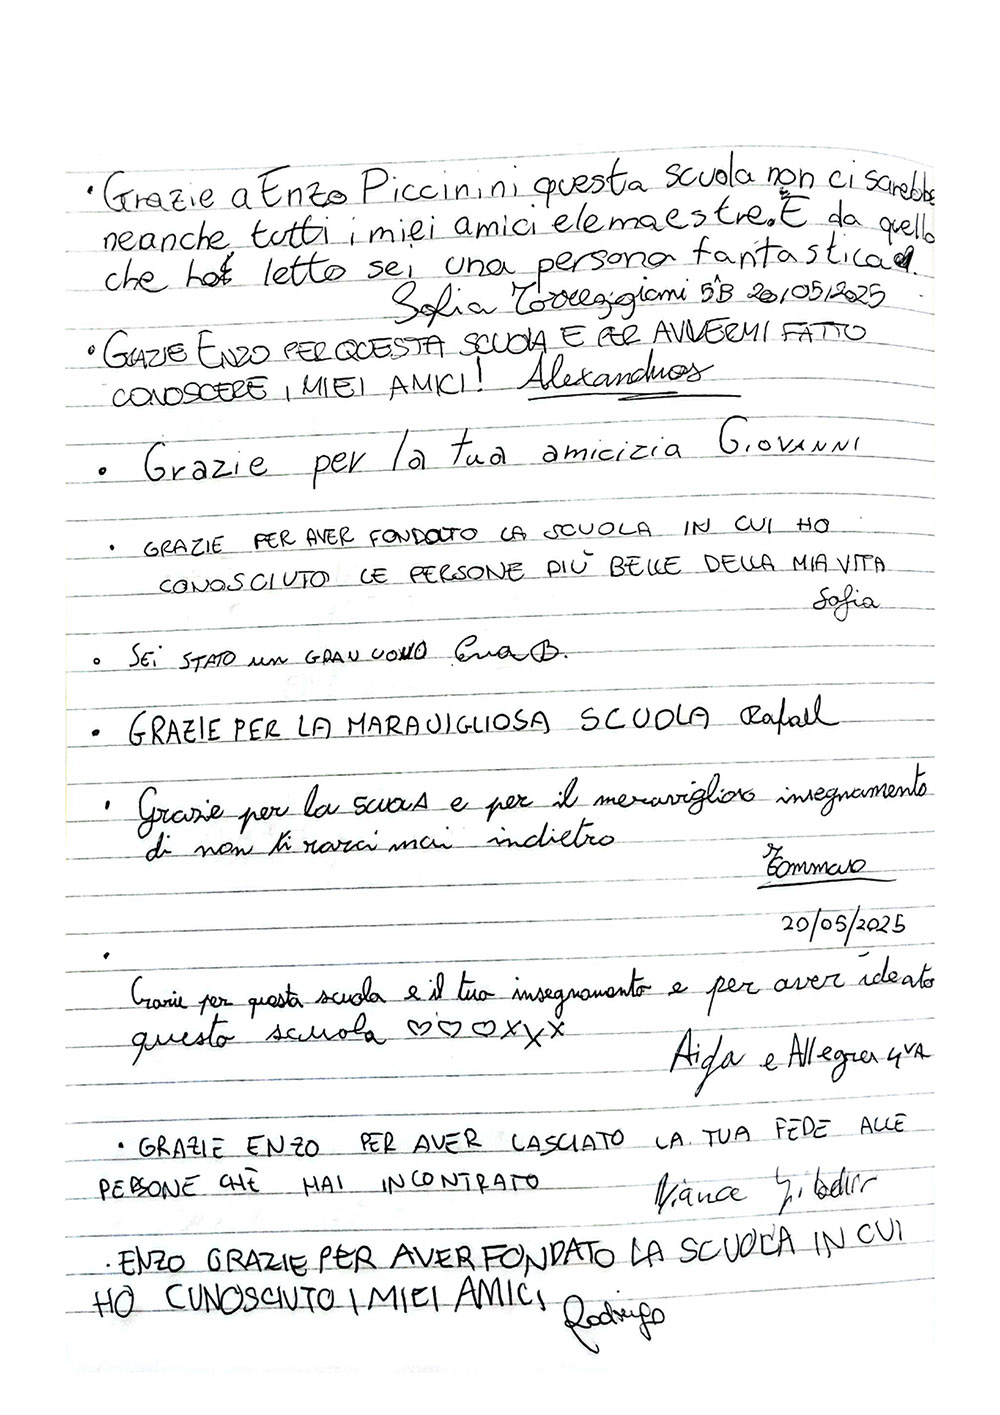 • Grazie a Enzo Piccinini questa scuola non ci sarebbe
neanche tutti i miei amici e le maestre. È da quello
che ho letto sei una persona fantastica.
Sofia Torreggiani 5ªB 20/05/2025
• GRAZIE ENZO PER QUESTA SCUOLA E PER AVVERMI FATTO
CONOSCERE I MIEI AMICI! Alexandros
• Grazie per la tua amicizia GIOVANNI
• GRAZIE PER AVER FONDATO LA SCUOLA IN CUI HO
CONOSCIUTO LE PERSONE PIÙ BELLE DELLA MIA VITA
Sofia
• SEI STATO UN GRAN UOMO B.
• GRAZIE PER LA MARAVIGLIOSA SCUOLA Rafael
• Grazie per la scuola e per il meraviglioso insegnamento
di non tirarci mai indietro
Tommaso
20/05/2025
•
Grazie per questa scuola e il tuo insegnamento e per aver ideato
questa scuola ♡♡♡xxx
Aida e Allegra 4ªA
• GRAZIE ENZO PER AVER LASCIATO LA TUA FEDE ALLE
PERSONE CHÈ HAI INCONTRATO
• ENZO GRAZIE PER AVER FONDATO LA SCUOLA IN CUI
HO CUNOSCIUTO I MIEI AMICI
Rodrigo